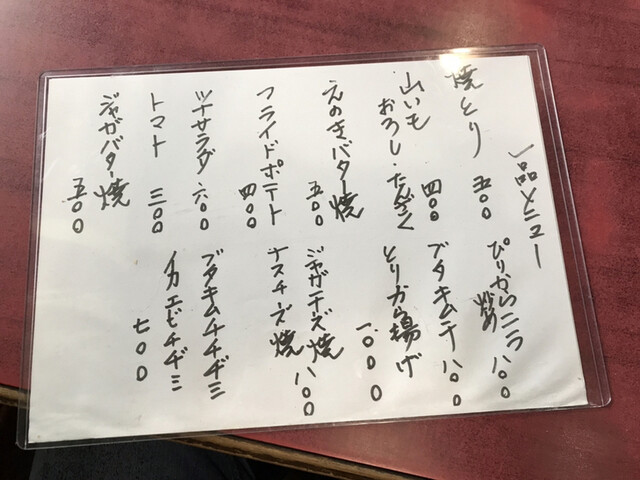 一品メニュー
焼とり 五〇〇
山いも
おろし・たんざく 四〇〇
えのきバター焼 五〇〇
フライドポテト 四〇〇
ツナサラダ 六〇〇
トマト 三〇〇
ジャガバター焼 五〇〇
ぴりからニラ炒め 八〇〇
ブタキムチ 八〇〇
とりから揚げ 一、〇〇〇
ジャガチーズ焼
ナスチーズ焼 八〇〇
ブタキムチチヂミ
イカエビチヂミ 七〇〇